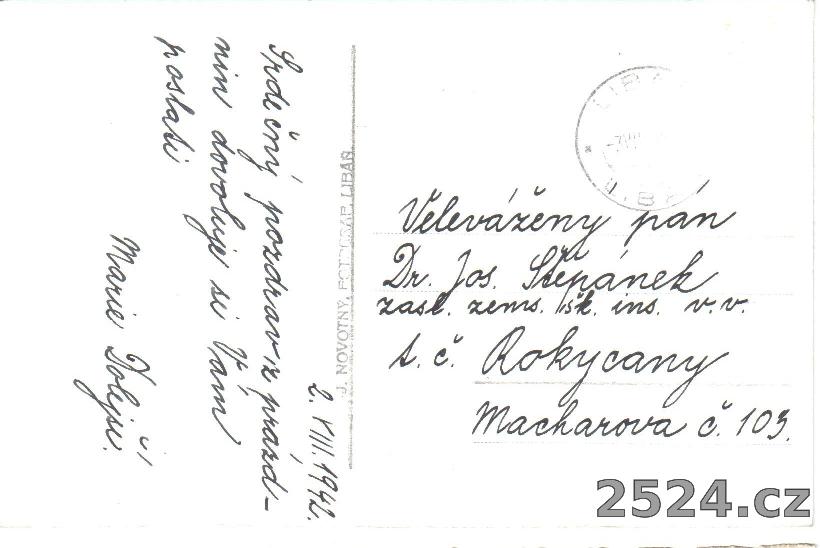 Srdečný pozdrav z prázd-
nin dovoluje si Vám
poslati
Marie Dolejší.
2. VIII. 1942.
J. NOVOTNÝ, FOTOGRAF, LIBÁŇ
LIBÁŇ
Velevážený pán
Dr. Jos. Štěpánek
zasl. zems. šk. ins. v. v.
t. č. Rokycany
Macharova č. 103.
2524.cz